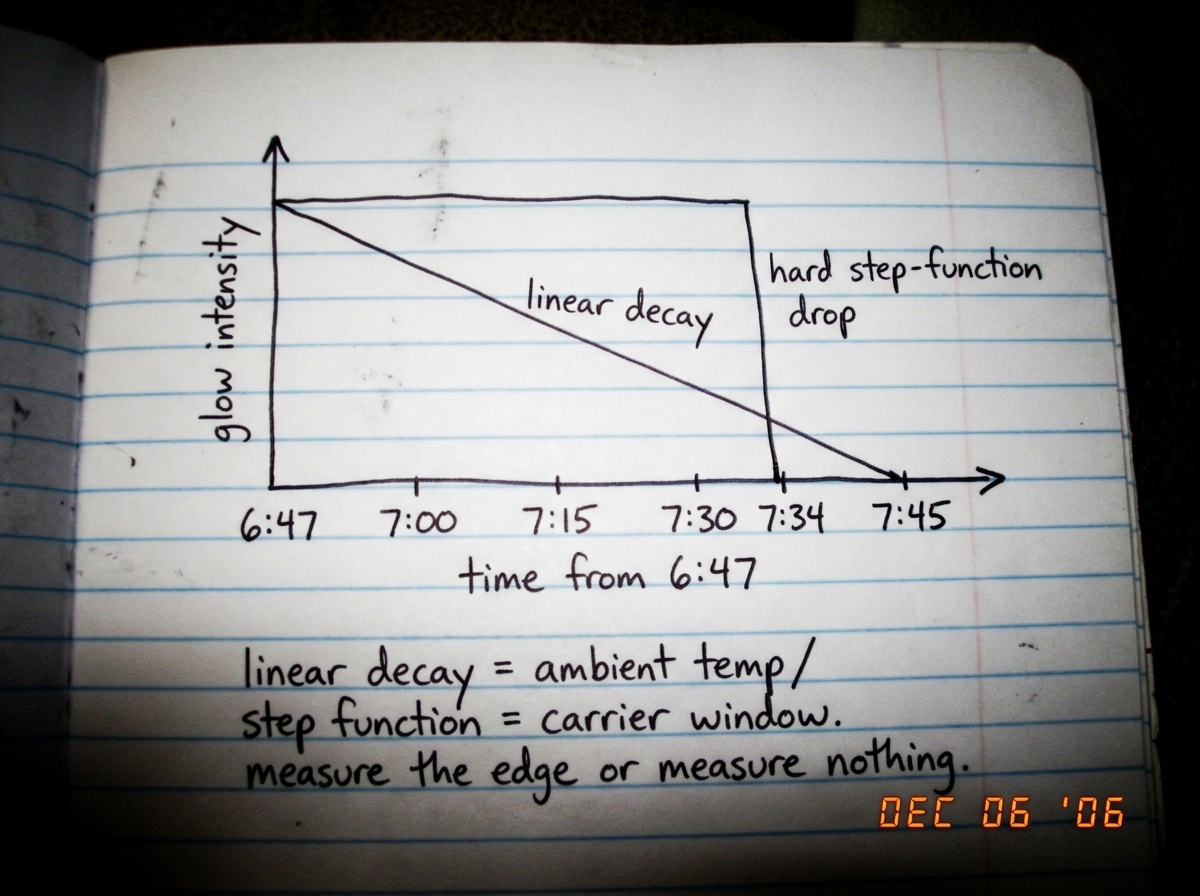 glow intensity
linear decay
hard step-function
drop
6:47 7:00 7:15 7:30 7:34 7:45
time from 6:47
linear decay = ambient temp/
step function = carrier window.
measure the edge or measure nothing.
DEC 06 '06